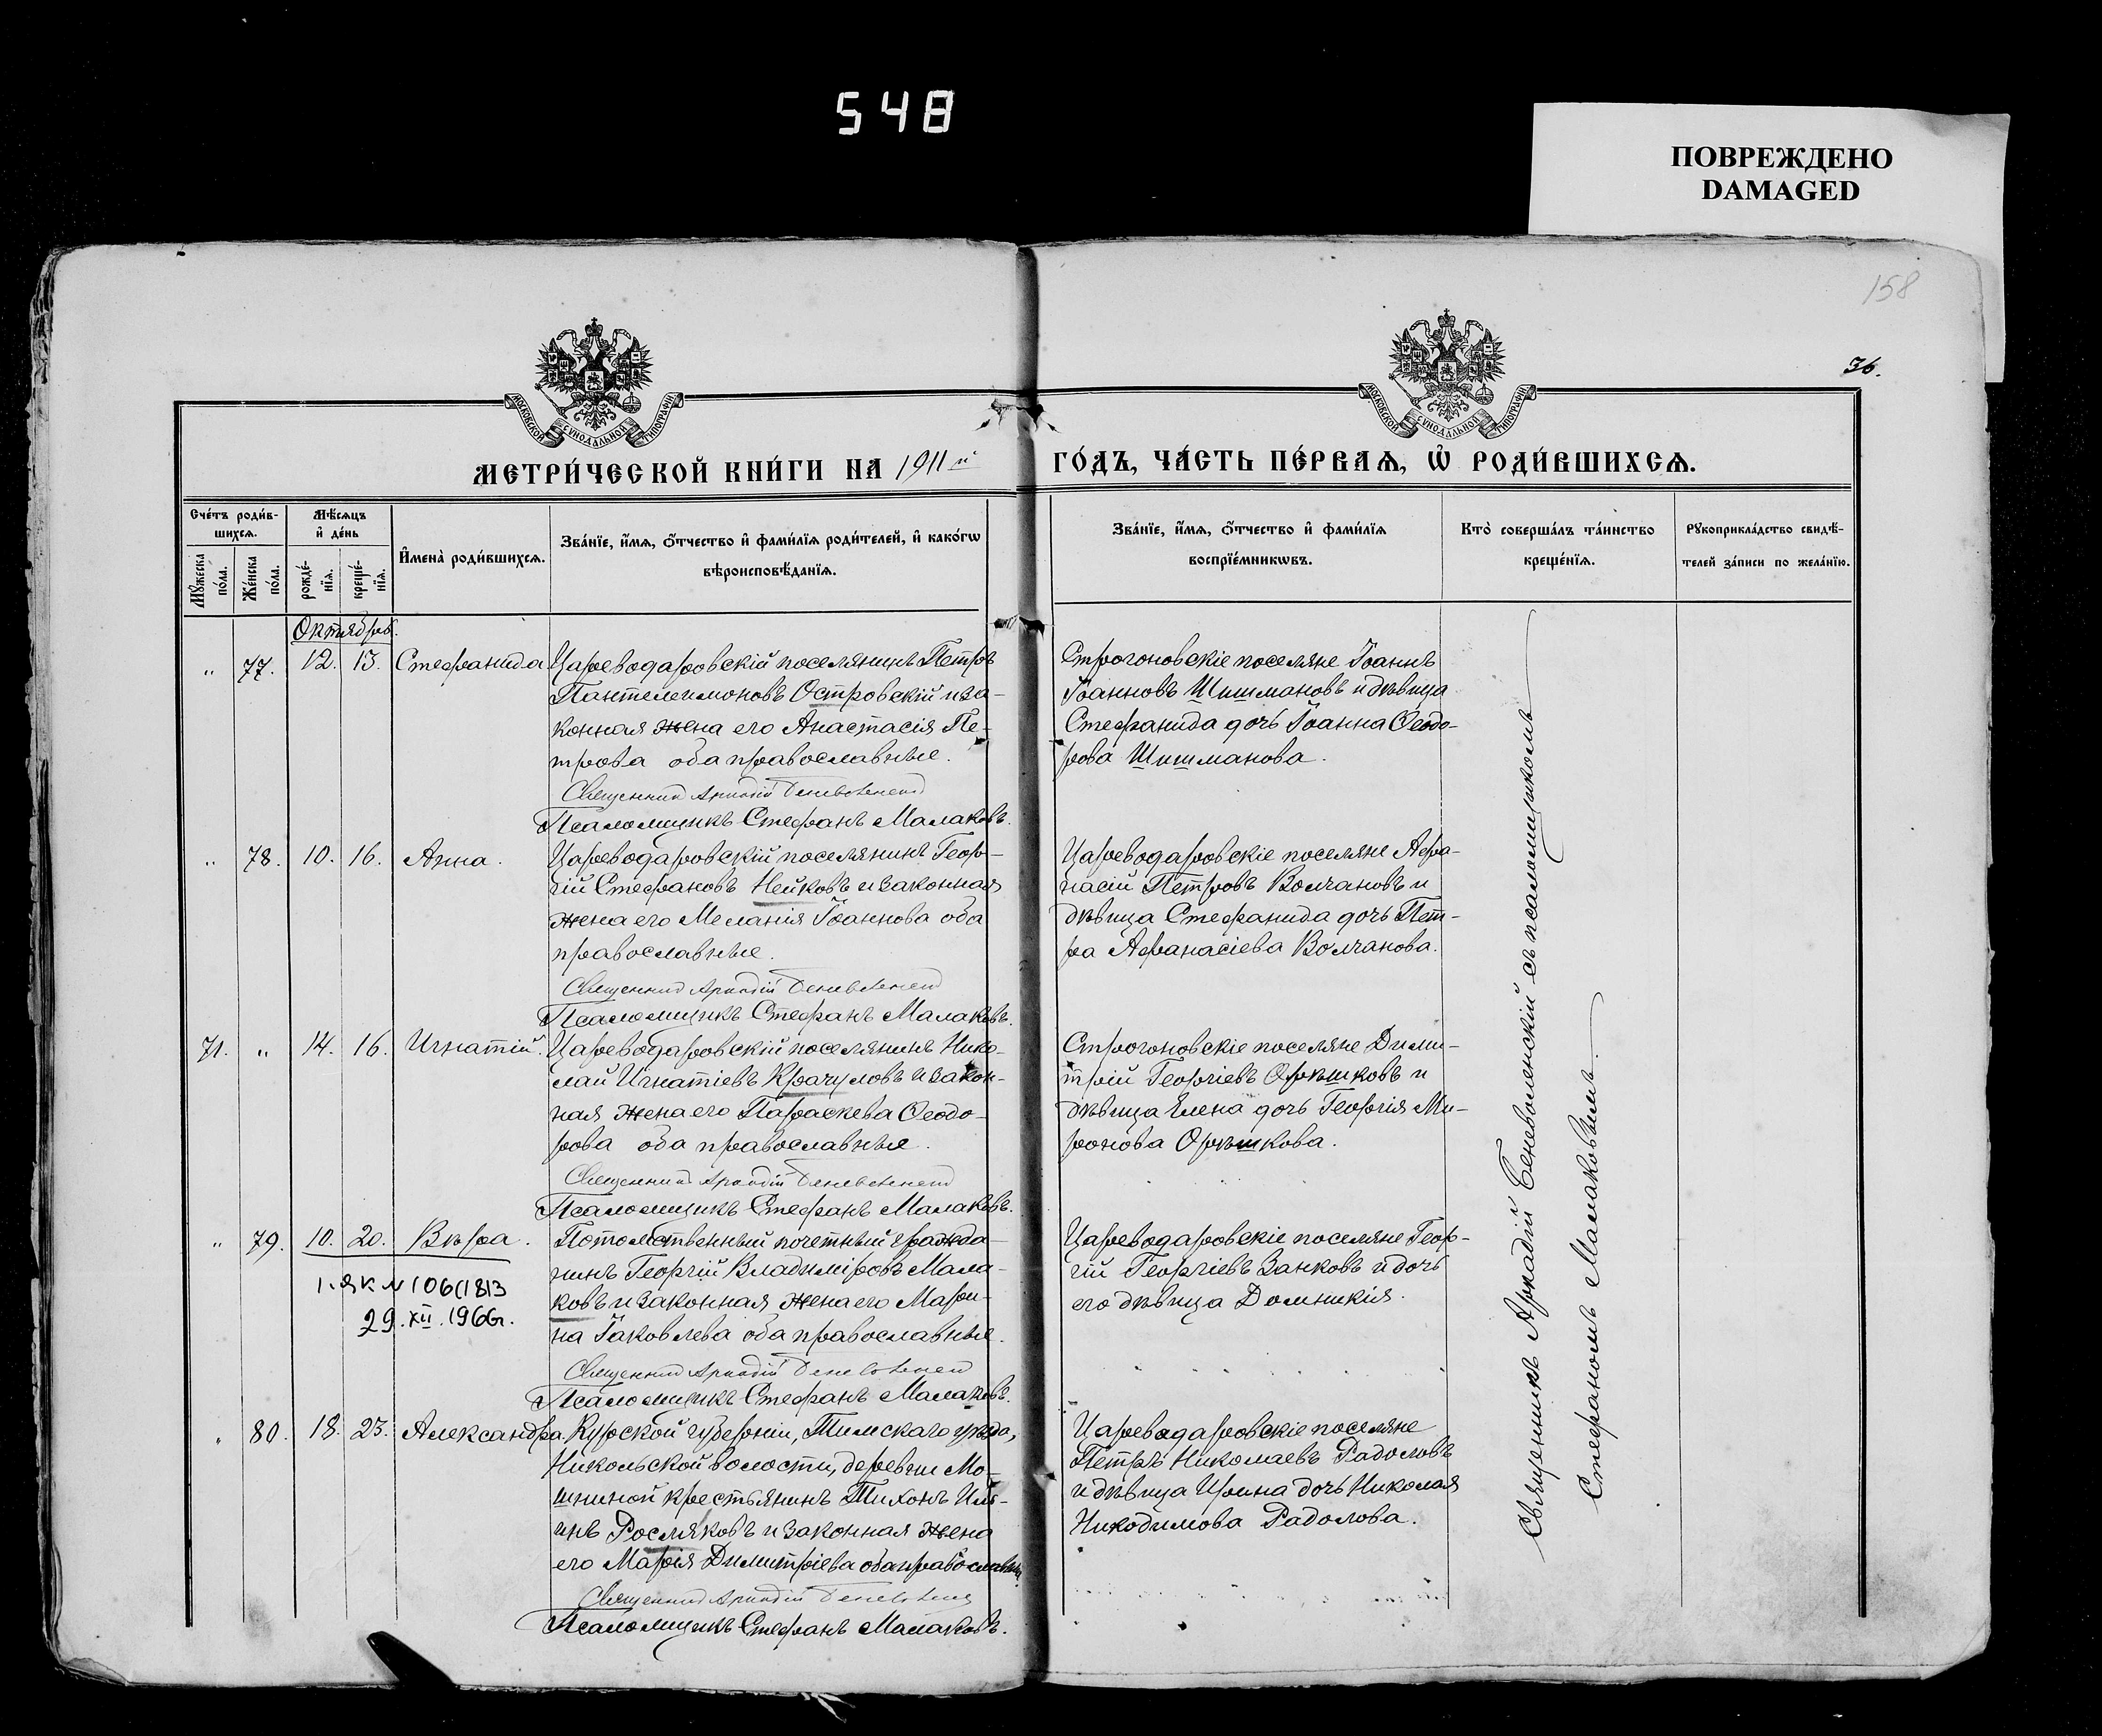 548
ПОВРЕЖДЕНО
DAMAGED
158
36.
МОСКОВСКОЙ СУНОДАЛЬНОЙ ТИПОГРАФІИ
МОСКОВСКОЙ СУНОДАЛЬНОЙ ТИПОГРАФІИ
МЕТРИ́ЧЕСКОЙ КНИ́ГИ НА 1911й ГО́ДЪ, ЧА́СТЬ ПЕ́РВАѦ, Ѽ РОДИ́ВШИХСѦ.
Сче́тъ роди́в-
шихсѧ.
Мꙋ́жеска по́ла.
Же́нска по́ла.
Мѣ́сѧцъ
и҆ де́нь
рожде́-
нїѧ.
креще́-
нїѧ.
И҆мена̀ роди́вшихсѧ.
Зва́нїе, и҆́мѧ, ѻ҆́тчество и҆ фами́лїѧ роди́телей, и҆ како́гѡ
вѣроисповѣ́данїѧ.
Зва́нїе, и҆́мѧ, ѻ҆́тчество и҆ фами́лїѧ
воспрїе́мникѡвъ.
Кто̀ соверша́лъ та́инство
креще́нїѧ.
Рꙋкоприкла́дство свидѣ́-
телей за́писи по жела́нїю.
Октябрь.
" 77. 12. 13. Стефанида
Цареводаровскій поселянинъ Петръ
Пантелеимоновъ Островскій и за-
конная жена его Анастасія Пе-
трова оба православные.
Священникъ Аркадій Беневоленскій
Псаломщикъ Стефанъ Малаковъ.
Строгоновскіе поселяне Іоаннъ
Іоанновъ Шишмановъ и дѣвица
Стефанида дочь Іоанна Ѳеодо-
рова Шишманова.
" 78. 10. 16. Анна.
Цареводаровскій поселянинъ Геор-
гій Стефановъ Нейковъ и законная
жена его Меланія Іоаннова оба
православные.
Священникъ Аркадій Беневоленскій
Псаломщикъ Стефанъ Малаковъ.
Цареводаровскіе поселяне Афа-
насій Петровъ Волчановъ и
дѣвица Стефанида дочь Пет-
ра Афанасіева Волчанова.
71. " 14. 16. Игнатій.
Цареводаровскій поселянинъ Нико-
лай Игнатіевъ Крачуловъ и закон-
ная жена его Параскева Ѳеодо-
рова оба православные.
Священникъ Аркадій Беневоленскій
Псаломщикъ Стефанъ Малаковъ.
Строгоновскіе поселяне Дими-
трій Георгіевъ Орѣшковъ и
дѣвица Елена дочь Георгія Ми-
ронова Орѣшкова.
" 79. 10. 20. Вѣра.
1.ЯК N 106(1813
29.XII.1966г.
Потомственный почетный гражда-
нинъ Георгій Владиміровъ Мала-
ковъ и законная жена его Мари-
на Іаковлева оба православные.
Священникъ Аркадій Беневоленскій
Псаломщикъ Стефанъ Малаковъ.
Цареводаровскіе поселяне Геор-
гій Георгіевъ Занковъ и дочь
его дѣвица Домникія.
" 80. 18. 23. Александра.
Курской губерніи, Тимскаго уѣзда,
Никольской волости, деревни Мо-
шниной крестьянинъ Тихонъ Иль-
инъ Росляковъ и законная жена
его Марія Димитріева оба православны
Священникъ Аркадій Беневоленскій
Псаломщикъ Стефанъ Малаковъ.
Цареводаровскіе поселяне
Петръ Николаевъ Радоловъ
и дѣвица Ирина дочь Николая
Никодимова Радолова.
Священникъ Аркадій Беневоленскій съ псаломщикомъ
Стефаномъ Малаковымъ.